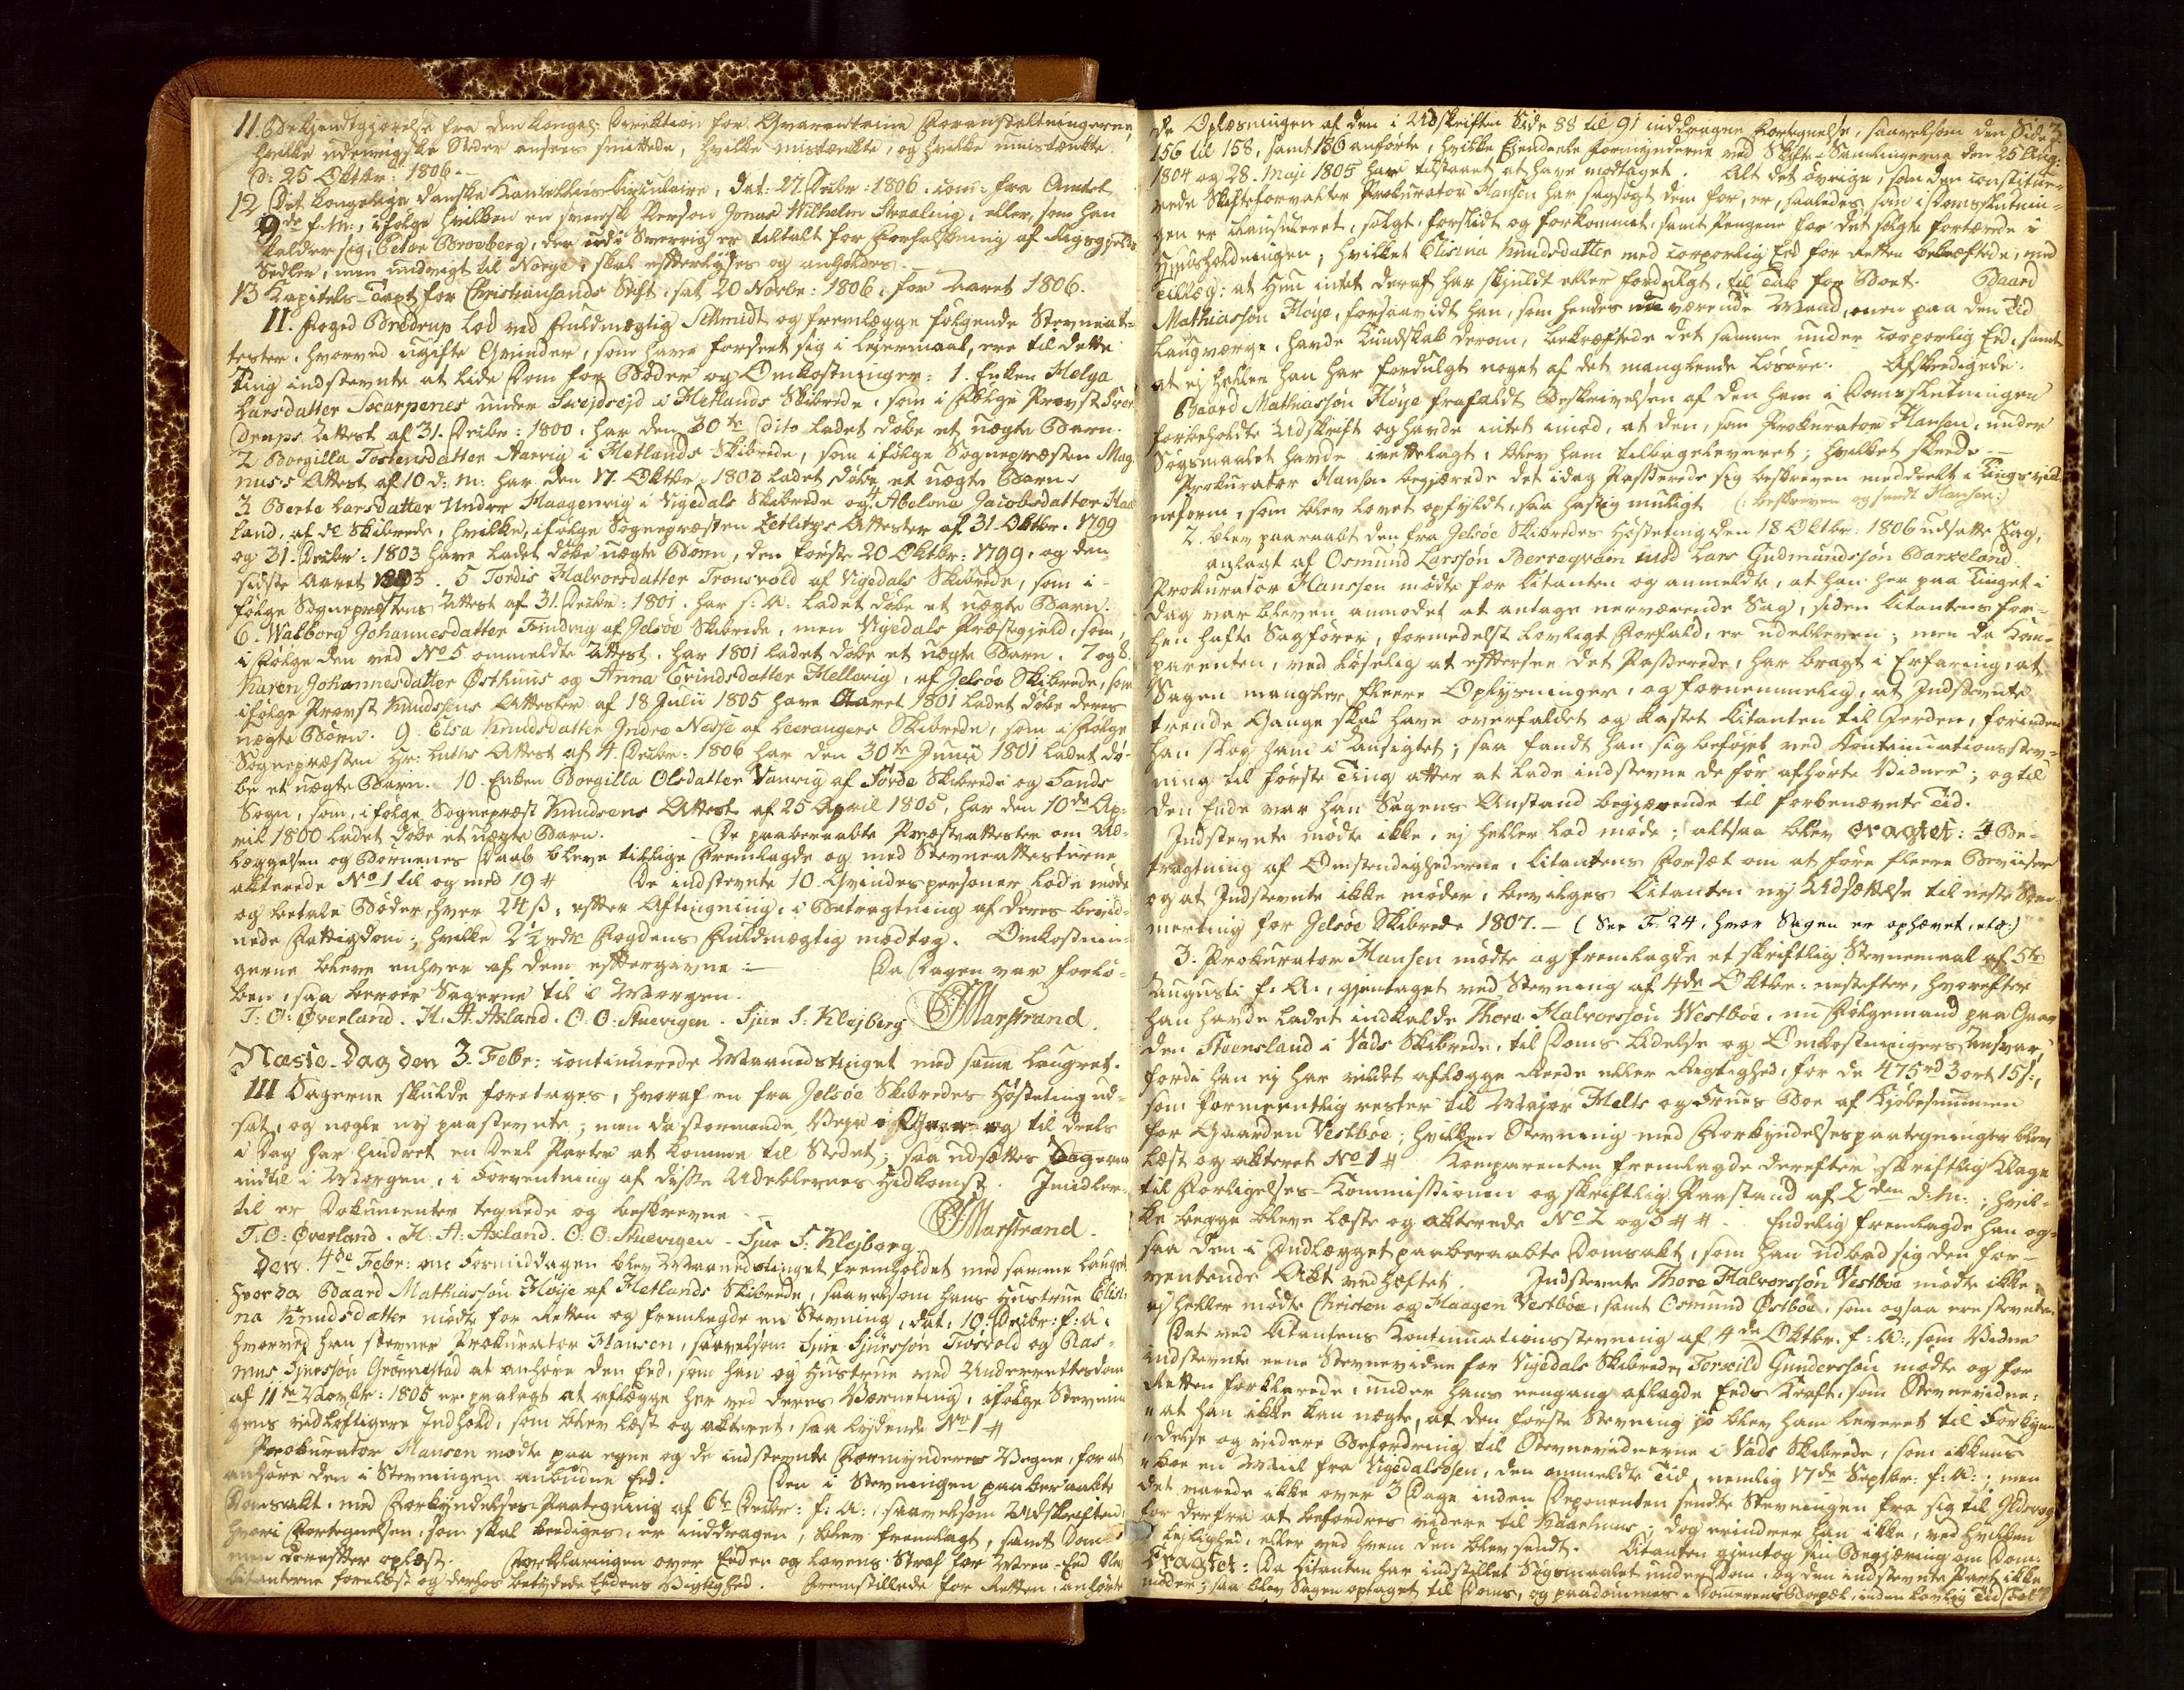 11. Bekjendtgjørelse fra den kongel: Direktion for Qvarantaine Foranstaltningerne,
hvilke udenrigske Steder ansees smittede, hvilke mistænkte, og hvilke umistænkte.
d: 25 Oktbr: 1806.-
12 Det kongelige danske Kancellies Circulaire, dat: 27. Decbr: 1806. com: fra Amtet
9de f. M:, ifølge hvilken en svensk Person Jonas Wilhelm Straaling, eller, som han
kalder sig, Peter Broeberg, der udi Sverrig er tiltalt for Forfalskning af Rigsgjelds
Sedler, men undvigt til Norge, skal efterlyses og anholdes.
13 Kapitels-Taxt for Christiansands Stift, sat 20 Novbr: 1806, for Aaret 1806.
II. Foged Bredrup lod ved Fuldmægtig Schmidt og fremlægge følgende Stevneat-
tester, hvorved ugifte Qvinder, som have forseet sig i Lejermaal, ere til dette
Ting indstevnte at lide Dom for Bøder og Omkostninger: 1. Enken Helga
Larsdatter Scarpenes under Svejdsejd i Hetlands Skibrede, som i Følge Provst
Attest af 31. Decbr: 1800. har den 30te dito ladet døbe et uægte Barn.
2 Borgilla Tostensdatter Aarvig i Hetlands Skibrede, som ifølge Sognepræsten Mag-
nus's Attest af 10 d: M: har den 17. Oktbr: 1803 ladet døbe et uægte Barn.
3 Berte Larsdatter Under Haagenvig i Vigedals Skibrede og 4 Abelona Jacobsdatter
land, af dº Skibrede, hvilke, ifølge Sognepræsten Zetlitzs Attester af 31. Oktbr: 1799
og 31. Decbr: 1803 have ladet døbe uægte Børn, den første 20 Oktbr: 1799, og den
sidste Aaret 1803. 5 Tordis Halvorsdatter Tronsvold af Vigedals Skibrede, som i-
følge Sognepræstens Attest af 31. Decbr: 1801. har s: A: ladet døbe et uægte Barn.
6. Walborg Johannesdatter Findvig af Jelsøe Skibrede, men Vigedals Præstegjeld, som,
i Følge den ved No 5 ommeldte Attest, har 1801 ladet døbe et uægte Barn. 7 og 8.
Karen Johannesdatter Østhuus og Anna Evindsdatter Hellevig, af Jelsøe Skibrede, som
ifølge Provst Knudsens Attester af 18 Julii 1805 have Aaret 1801 ladet døbe deres
uægte Børn. 9. Elsa Knudsdatter Indre Nesse af Leerangers Skibrede, som i Følge
Sognepræsten Hr: Luths Attest af 4 Decbr: 1806 har den 30te Junii 1801 ladet dø-
be et uægte Barn. 10. Enken Borgilla Olsdatter Vanvig af Førde Skibrede og Sands
Sogn, som, ifølge Sognepræst Knudsens Attest af 25 April 1805, har den 10de Ap:
ril 1800 ladet døbe et uægte Barn. - De paaberaabte Præsteattester om Ud-
læggelsen og Børnenes Daab bleve tillige fremlagde og med Stevneattesterne
akterede No 1 til og med 19 # De indstevnte 10. Qvindespersoner lode møde
og betale Bøder, hver 24 ß, efter Aftingning, i Betragtning af deres bevid-
nede Fattigdom; hvilke 2½ rdlr Fogdens Fuldmægtig modtog. Omkostnin-
gerne bleve enhver af dem eftergivne :- Da Dagen var forlø-
ben, saa beroer Sagerne til i Morgen.
T: O: Øverland. H. A. Axland. O: O: Stuevigen. Sjur S: Klejberg Marstrand.
Næste-Dag den 3. Febr: continuerede Maanedstinget med samme Laugret.
III Sagerne skulde foretages, hvoraf en fra Jelsøe Skibredes Høsteting ud-
sat, og nogle ny paastevnte; men da stormende Vejr i Gaar og til deels
i Dag har hindret en Deel Parter at komme til Stedet; saa udsættes Sagerne
indtil i Morgen, i Forventning af disse Udeblevnes Hidkomst. Imidler-
til er Dokumenter tegnede og beskrevne -
T. O: Øverland. H: A: Axland. O: O: Stuevigen. Sjur S: Klejberg. Marstrand.
Den 4de Febr: om Formiddagen blev Maanedstinget fremholdet med samme Laugret,
hvor da Baard Mathiassøn Høije af Hetlands Skibrede, saavelsom hans Hustrue Elisi-
na Knudsdatter mødte for Retten og fremlagde en Stevning, dat: 10. Decbr: f: A:
hvorved han stevner Prokurator Hansen, saavelsom Sjur Sjursson Tiøsvold og Ras-
mus Sjursson Grønnestad at anhøre den Eed, som han og Hustrue ved Underretsdom
af 11te Novbr: 1805 er paalagt at aflægge her ved deres Værneting, ifølge Stevnin-
gens vidløftigere Indhold, som blev læst og akteret, saa lydende No 1 #
Prokurator Hansen mødte paa egne og de indstevnte Formynderes Vegne, for at
anhøre den i Stevningen anbudne Eed. Den i Stevningen paaberaabte
Domsakt, med Forkyndelses-Paategning af 6te Decbr: f: A:, saavelsom Udskriften,
hvori Fortegnelsen, som skal beediges, er inddragen, blev fremlagt, samt Dom-
men derefter oplæst. Forklaringen over Eeden og Lovens Straf for Meen-Eed blev
Litanterne forelæst og derhos betydede Eedens Vigtighed. Fremstillede for Retten, anhørte
de Oplæsningen af den i Udskriften Side 88 til 91 inddragne Fortegnelse, saavelsom den Side
156 til 158, samt 180 anførte, hvilke Eiendeele Formynderne ved Skifte-Samlingerne den 25 Aug:
1804 og 28. Maji 1805 have tilstaaet at have modtaget. Alt det øvrige, som den constitue-
rede Skifteforvalter Prokurator Hansen har sagsøgt dem for, er, saaledes som i Domslutnin-
gen er ommeldet, solgt, forslidt og forkommet, samt Pengene for det solgte fortærede i
Huusholdningen; hvilket Elisina Knudsdatter med corporlig Eed for Retten bekræftede, med
Tillæg: at hun intet deraf har skjuldt eller fordulgt, til Tab for Boet. Baard
Mathiassøn Høije, forsaavidt han, som hendes nu værende Mand, men paa den Tid
Laugværge, havde Kundskab derom, bekræftede det samme under corporlig Eed, samt
at ej heller han har fordulgt noget af det manglende Løsøre. Afskedigede.
Baard Mathiassøn Høije frafaldt Beskrivelsen af den ham i Domslutningen
forbeholdte Udskrift og havde intet imod, at den, som Prokurator Hansen, under
Søgsmaalet havde irettelagt, blev ham tilbageleveret; hvilket skeede.-
Prokurator Hansen begjærede det idag Passerede sig beskreven meddeelt i Tingsvid-
neform, som blev lovet opfyldt, saa hastig muligt (: beskreven og sendt Hansen:)
2. Blev paaraabt den fra Jelsøe Skibredes Høsteting den 18 Oktbr: 1806 udsatte Sag,
anlagt af Osmund Larssøn Berreqvam imod Lars Gudmundssøn Barkeland.
Prokurator Hanssen mødte for Litanten og anmeldte, at han her paa Tinget i
Dag var bleven anmodet at antage nerværende Sag, siden Litantens for-
hen hafte Sagfører, formedelst lovligt Forfald, er udebleven; men da Kom-
parenten, ved løselig at eftersee det Passerede, har bragt i Erfaring, at
Sagen mangler fleere Oplysninger, og fornemmelig, at Indstevnte
trende Gange skal have overfaldet og kastet Litanten til Jorden, forinden
han slog ham i Ansigtet; saa fandt han sig beføjet ved Kontinuationsstev-
ning til første Ting atter at lade indstevne de før afhørte Vidner; og til
den Ende var han Sagens Anstand begjærende til forbenævnte Tid.
Indstevnte mødte ikke, ej heller lod møde; altsaa blev eragtet: I Be-
tragtning af Omstendighederne, Litantens Forsæt om at føre fleere Beviiser
og at Indstevnte ikke møder, bevilges Litanten ny Udsættelse til neste Som-
merting for Jelsøe Skibrede 1807.- (See F. 24, hvor Sagen er ophævet, etc:)
3. Prokurator Hansen mødte og fremlagde et skriftlig Stevnemaal af 5te
Augusti f. A:, gjentaget ved Stevning af 4de Oktbr: nestefter, hvorefter
han havde ladet indkalde Thore Halvorssøn Westbøe, nu Følgemand paa Gaar-
den Steensland i Vads Skibrede, til Doms Lidelse og Omkostningers Ansvar,
fordi han ej har vildet aflægge Reede eller Rigtighed, for de 475 rd 3 ort 15 ß.,
som formeentlig rester til Major Helts og Frues Boe af Kjøbesummen
for Gaarden Vestbøe; hvilken Stevning med Forkyndelsespaategninger blev
læst og akteret No 1 # Komparenten fremlagde derefter skriftlig Klage
til Forligelses-Kommissionen og skriftlig Paastand af 2den d: M:; hvil-
ke begge bleve læste og akterede No 2 og 3 # #. Endelig fremlagde han og-
saa den i Indlægget paaberaabte Domsakt, som han udbad sig den for-
ventende Akt vedhæftet. Indstevnte Thore Halvorssøn Vestbøe mødte ikke,
ej heller mødte Christen og Haagen Vestbøe, samt Osmund Østbøe, som ogsaa ere stevnte.
Det ved Litantens Kontinuationsstevning af 4de Oktbr: f: A:, som Vidne
indstevnte eene Stevnevidne for Vigedals Skibrede, Torkild Gunderssøn mødte og for
Retten forklarede, under hans eengang aflagde Eeds Kraft, som Stevnevidne:
"at han ikke kan nægte, at den første Stevning jo blev ham leveret til Forkyn-
"delse og videre Befordring til Stevnevidnerne i Vads Skibrede, som ikkuns
"boe en Miil fra Vigedalsøen, den ommeldte Tid, nemlig 17de Septbr: f: A:; men
det varede ikke over 3 Dage inden Deponenten sendte Stevningen fra sig til Ildsvog
for derfra at befordres videre til ; dog erindrer han ikke, ved hvilken
Lejlighed, eller ved hvem den blev sendt. Litanten gjentog sin Begjæring om Dom.
Eragtet: Da Litanten har indstillet Søgsmaalet under Dom, og den indstevnte Part ikke
møder; saa blev Sagen optaget til Doms, og paadømmes i Dommerens Bopæl, inden lovlig Tid